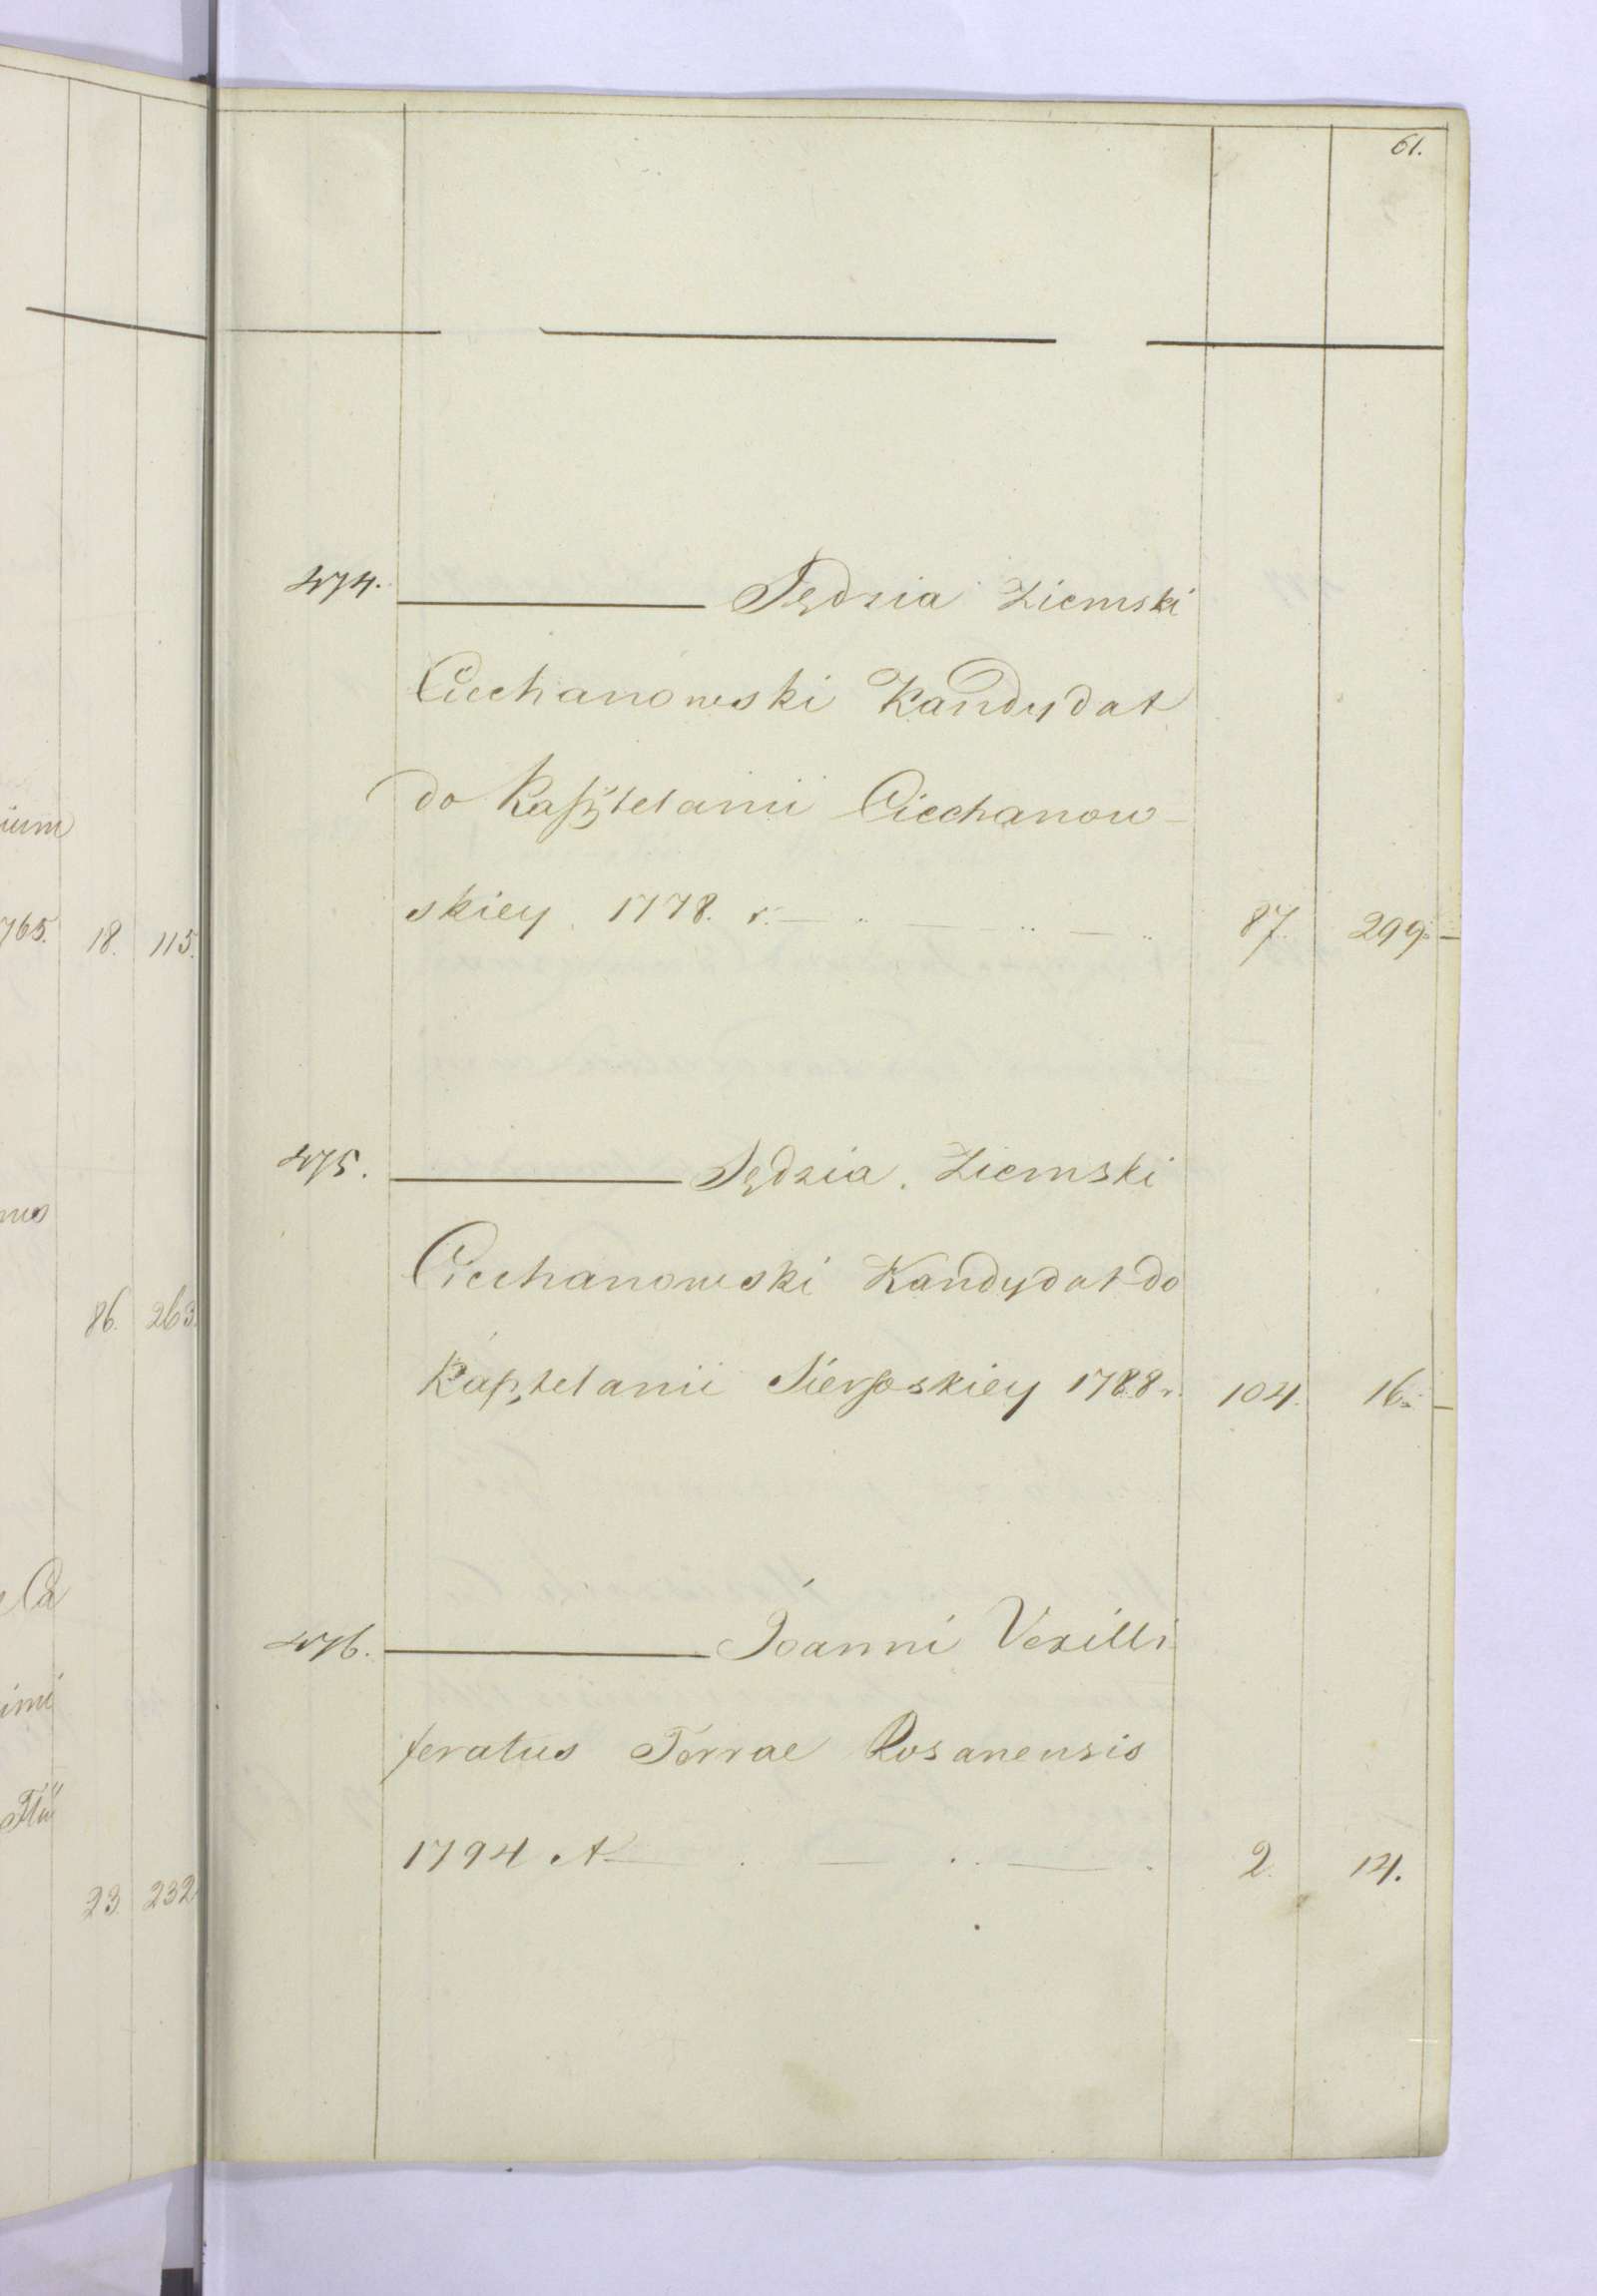 61.
474. Sędzia Ziemski
Ciechanowski Kandydat
do Kasztelanii Ciechanow-
skiey 1778. r. 87. 299.
475. Sędzia Ziemski
Ciechanowski Kandydat do
Kasztelanii Sierpskiey 1788 r. 104. 16.
476. Joanni Vexilli
feratus Terrae Rosanensis
1794 A 2. 14.
ium
765. 18. 115.
86. 263.
imi
23. 232.